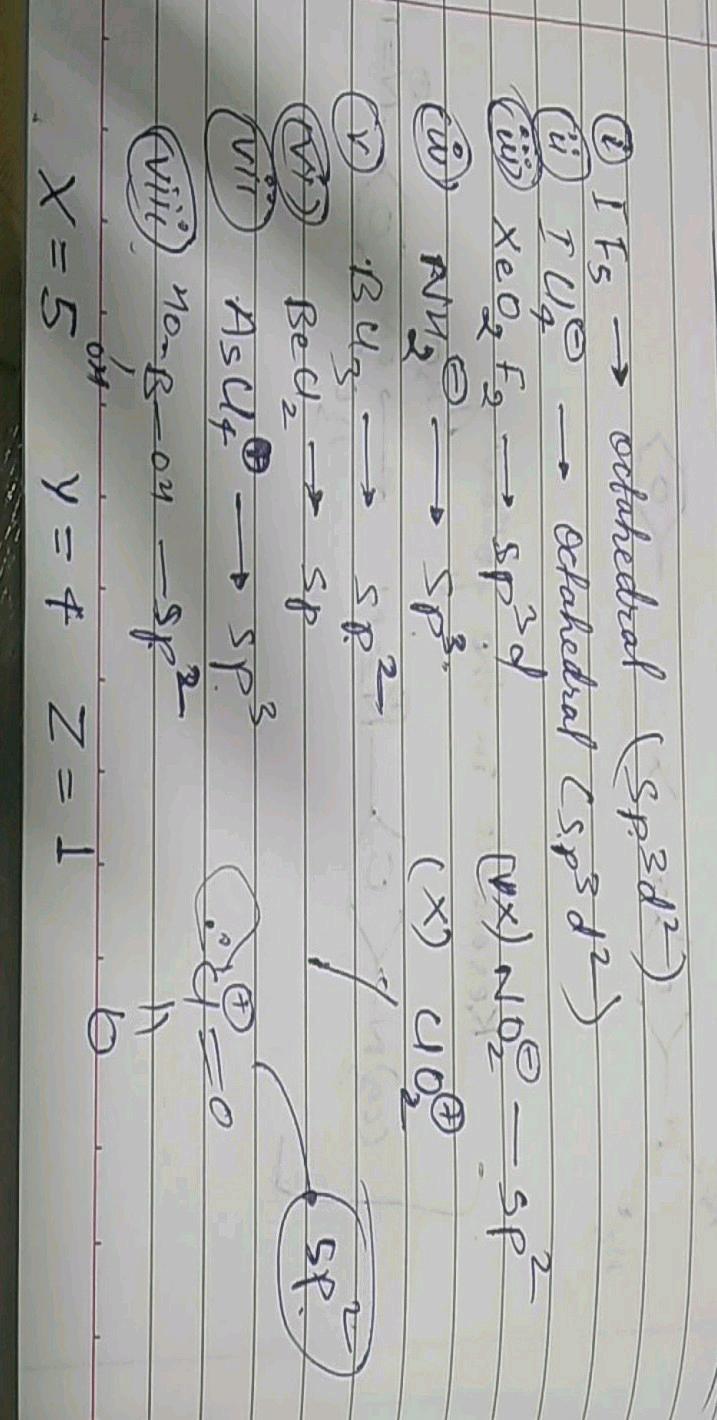 (i) IF5 → octahedral (sp³d²)
(ii) ICl4⊖ → octahedral (sp³d²)
(iii) XeO2F2 → sp³d
(iv) NH2⊖ → sp³
(v) BCl3 → sp²
(vi) BeCl2 → sp
(vii) AsCl4⊕ → sp³
(viii) HO-B-OH — sp²
OH
X = 5 Y = 4 Z = 1
(ix) NO2⊖ — sp²
(X) ClO2⊕
sp²
Cl⊕=O
O